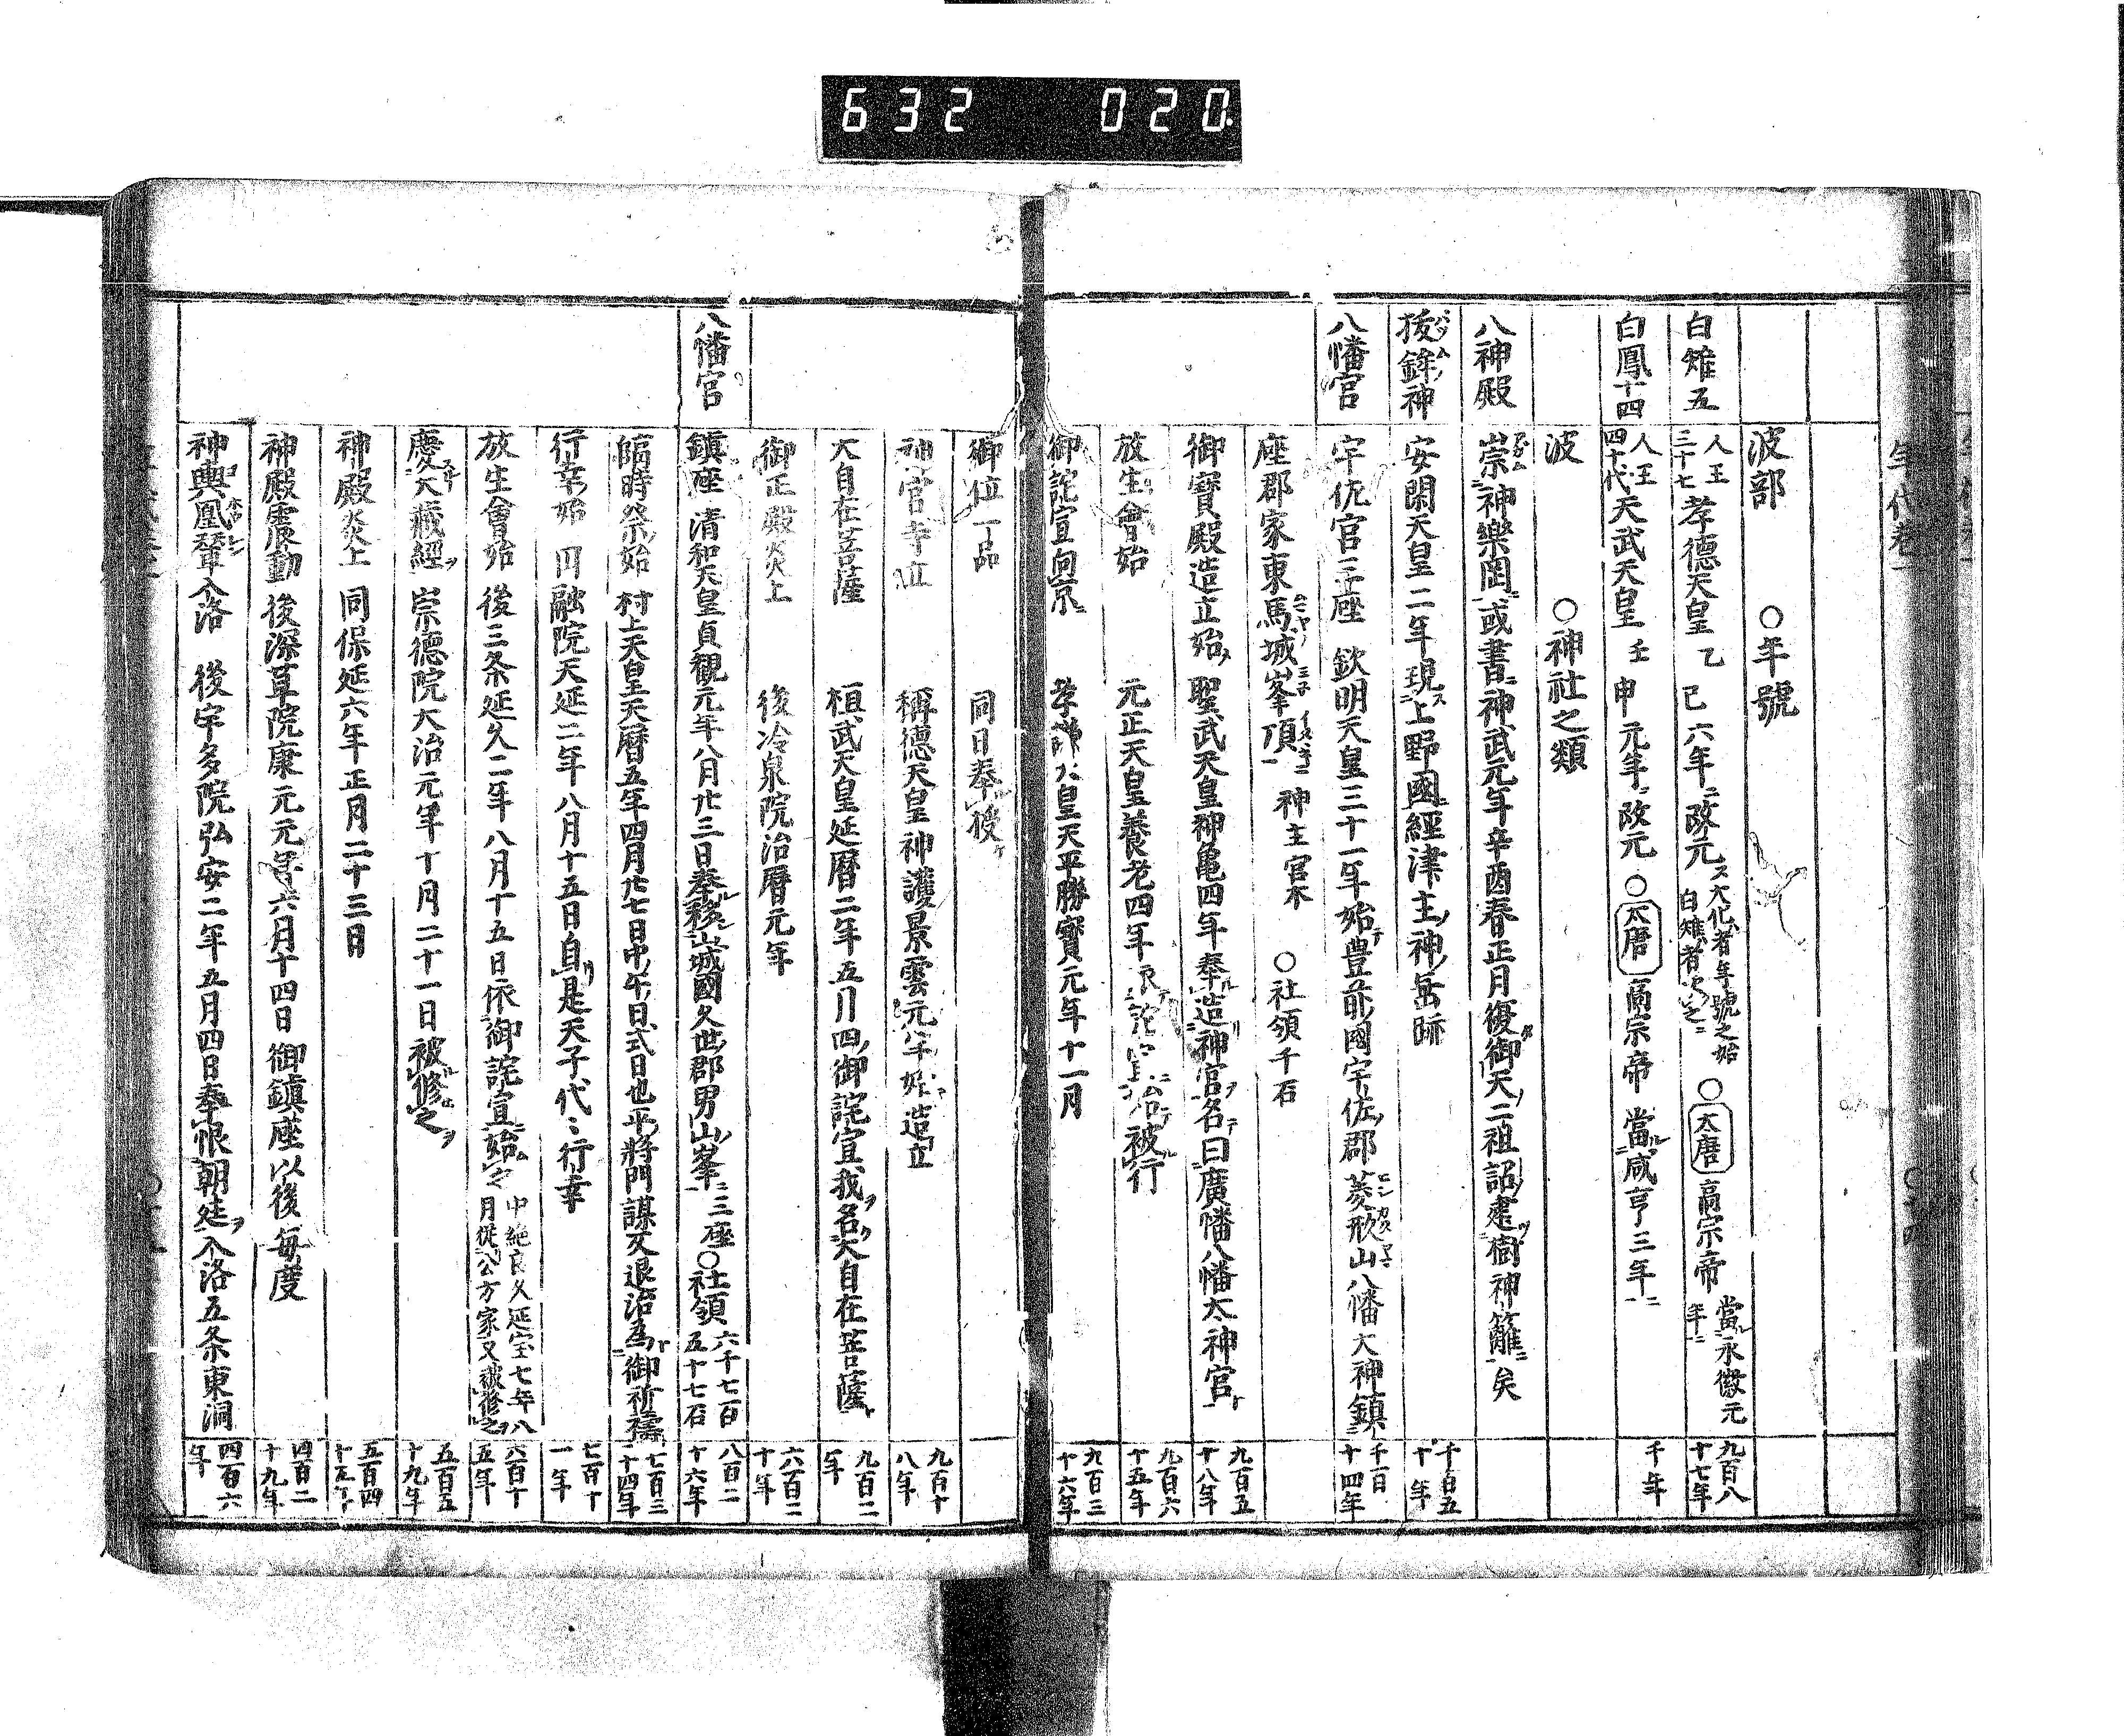 632 020
波部 ○年號
白雉五 人王三十七 孝德天皇 乙巳六年ニ改元ス 大化者年號之始 白雉者次之ニ ○太唐 高宗帝 當ル永徽元年ニ 九百八十七年
白鳳十四 人王四十代 天武天皇 壬申元年ニ改元 ○太唐 高宗帝 當ル咸亨三年ニ 千年
波 ○神社之類
八神殿 崇神樂岡ニ或書ニ神武元年辛酉春正月復御天ノ二祖詔建樹神籬ニ矣
拔鉾神 安閑天皇二年現ス上野國ニ經津主ノ神ノ岳跡 千百五十年
八幡宮 宇佐宮三座 欽明天皇三十一年始テ豊前ノ國宇佐ノ郡菱形山八幡大神鎮 千百十四年
座郡家東馬城峯頂ニ 神主宮不 ○社領千石
御寶殿造立始 聖武天皇神亀四年奉造神宮名曰廣幡八幡太神宮ト 九百五十八年
放生會始 元正天皇養老四年 被行 九百六十五年
御詫宣向京ニ 孝謙天皇天平勝寳元年十一月 九百三十六年
御位一品 同日奉授ケ
神宮寺立 稱德天皇神護景雲元年始造立 九百十八年
大自在菩薩 桓武天皇延暦二年五月四ノ御詫宣我ヲ名ク大自在菩薩ト 九百二年
御正殿炎上 後冷泉院治暦元年 六百二十年
八幡宮 鎮座 清和天皇貞観元年八月廿三日奉移山城國久世ノ郡男山峯ニ三座○社領 六千七百五十七石 八百二十六年
臨時祭ノ始 村上天皇天暦五年四月廿七日中ノ午ノ日式日也平ノ將門謀反退治ノ為ニ御祈禱 七百三十四年
行幸ノ始 円融院天延二年八月十五日自リ是天子代〻行幸 七百十一年
放生會始 後三条延久二年八月十五日依御詫宣ニ始之 中絶良久延宝七年八月從公方家又被修之ヲ 六百十五年
慶大藏經ヲ 崇德院大治元年十月二十一日被修之ヲ 五百五十九年
神殿炎上 同保延六年正月二十三日 五百四十五年
神殿震動 後深草院康元元年六月十四日 御鎮座以後毎度 四百二十九年
神輿凰輦入洛 後宇多院弘安二年五月四日奉恨朝廷ヲ入洛五条東洞 四百六年